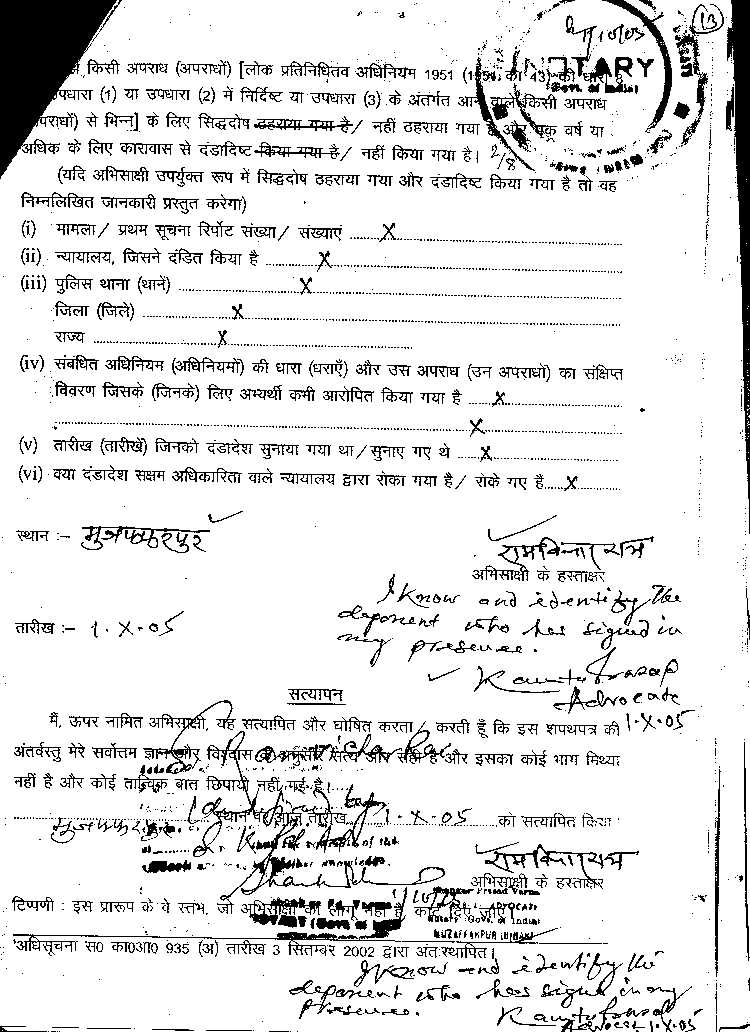 13
1/10/05
NOTARY
(Govt. of India)
किसी अपराध (अपराधों) [लोक प्रतिनिधितव अधिनियम 1951 (1951 का 43) की धारा 8
उपधारा (1) या उपधारा (2) में निर्दिष्ट या उपधारा (3) के अंतर्गत आने वाले किसी अपराध
(अपराधों) से भिन्न] के लिए सिद्धदोष ठहराया गया है / नहीं ठहराया गया है और एक वर्ष या
अधिक के लिए कारावास से दंडादिष्ट किया गया है / नहीं किया गया है।
(यदि अभिसाक्षी उपर्युक्त रूप में सिद्धदोष ठहराया गया और दंडादिष्ट किया गया है तो वह
निम्नलिखित जानकारी प्रस्तुत करेगा)
(i) मामला / प्रथम सूचना रिर्पोट संख्या / संख्याएं ........X........
(ii) न्यायालय, जिसने दंडित किया है ........X........
(iii) पुलिस थाना (थानें) ........X........
जिला (जिले) ........X........
राज्य ........X........
(iv) संबंधित अधिनियम (अधिनियमों) की धारा (धराएँ) और उस अपराध (उन अपराधों) का संक्षिप्त
विवरण जिसके (जिनके) लिए अभ्यर्थी कमी आरोपित किया गया है ....X........
........X........
(v) तारीख (तारीखें) जिनको दंडादेश सुनाया गया था / सुनाए गए थे ....X........
(vi) क्या दंडादेश सक्षम अधिकारिता वाले न्यायालय द्वारा रोका गया है / रोके गए हैं....X........
स्थान :– मुजफ्फरपुर
अभिसाक्षी के हस्ताक्षर
I know and identify the
deponent who has signed in
my presence.
तारीख :– 1.X.05
Advocate
1.X.05
सत्यापन
मैं, ऊपर नामित अभिसाक्षी, यह सत्यापित और घोषित करता / करती हूँ कि इस शपथपत्र की
अंतर्वस्तु मेरे सर्वोत्तम ज्ञान और विश्वास के अनुसार सत्य और सही है और इसका कोई भाग मिथ्या
नहीं है और कोई तात्विक बात छिपायी नहीं गई है।
मुजफ्फरपुर स्थान पर आज तारीख 1.X.05 को सत्यापित किया
अभिसाक्षी के हस्ताक्षर
ADVOCATE
Notary Govt. of India
MUZAFFARPUR (BIHAR)
टिप्पणी : इस प्रारूप के वे स्तंभ, जो अभिसाक्षी को लागू नहीं है, काट दिए जाएं।
'अधिसूचना स0 का0आ0 935 (अ) तारीख 3 सितम्बर 2002 द्वारा अंतःस्थापित।
I know and identify the
deponent who has signed in my
presence.
Advocate 1.X.05